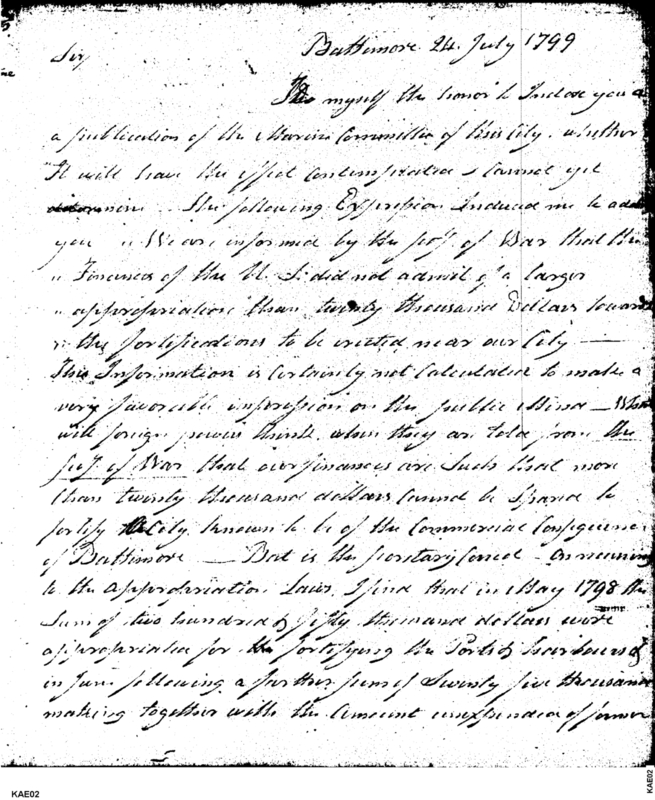 Baltimore 24. July 1799
Sir,
I do myself the honor to Inclose you
a publication of the Marine Committee of this City. whether
It will have the effect Contemplated I cannot yet
determine. The following Expression Induced me to
you " We are informed by the secy. of War that the
" Finances of the U. S. did not admit of a larger
" appropriation than twenty thousand Dollars towards
" the fortifications to be erected near our City —
This Information is Certainly not Calculated to make a
very favorable impression on the public Mind — What
will foreign powers think, when they are told from the
secy. of War that our finances are Such that more
than twenty thousand dollars Cannot be Spared to
fortify a City known to be of the Commercial Consequence
of Baltimore — But is the secretary Correct — On recurring
to the appropriation Laws, I find that in May 1798 the
Sum of two hundred & fifty thousand dollars were
appropriated for the fortifying the Ports & harbours &
in June following a further sum of Seventy five thousand
making together with the Amount unexpended of former
KAE02
KAE02